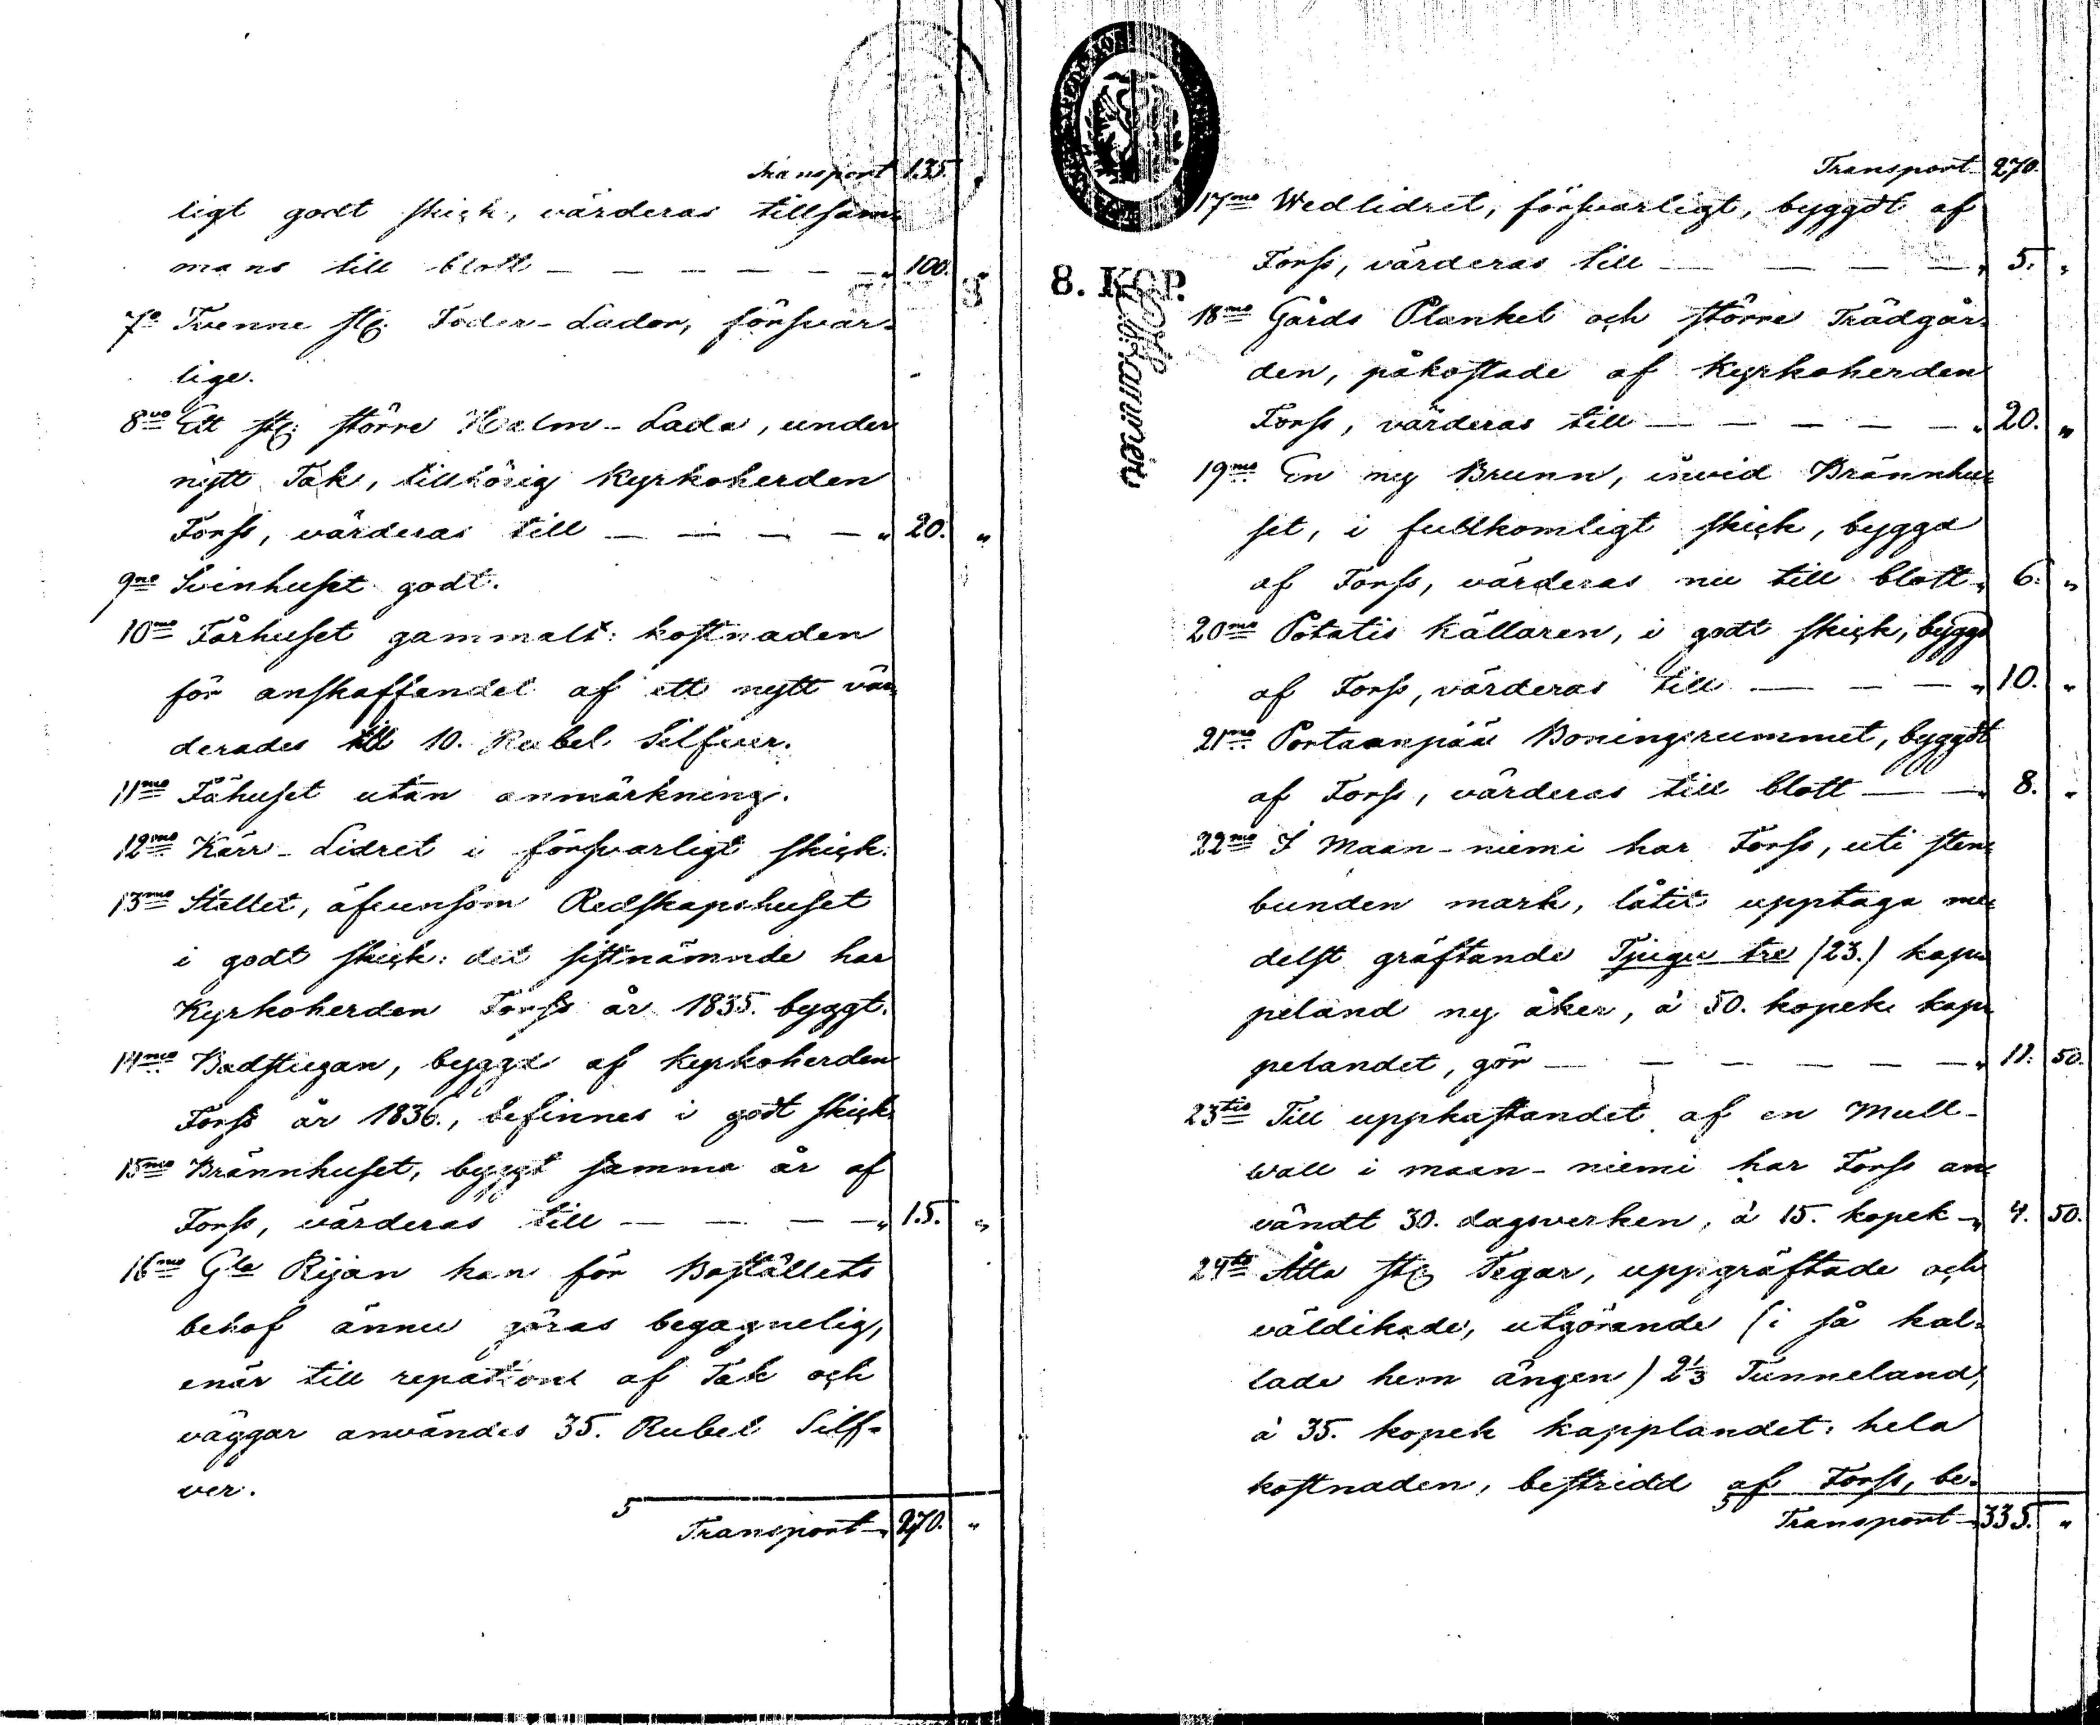 Transport 135. "
ligt godt skick, värderas tillsam=
mans till blott — — — — — " 100. "
7º Tvenne st: Foder-Lador, försvar=
lige.
8vo Ett st: större Halm-Lada, under
nytt Tak, tillhörig Kyrkoherden
Forss, värderas till — — — — " 20. "
9no Svinhuset godt.
10mo Fårhuset gammalt: kostnaden
för anskaffandet af ett nytt vär=
derades till 10. Rubel Silfver.
11mo Fähuset utan anmärkning.
12mo Kärr-Lidret i försvarligt skick.
13mo Stallet, äfvensom Redskapshuset
i godt skick: det sistnämnde har
Kyrkoherden Forss år 1835. byggt.
14mo Badstugan, byggd af Kyrkoherden
Forss år 1836., befinnes i godt skick.
15mo Brännhuset, byggt samma år af
Forss, värderas till — — — — " 15. "
16mo Gla Rijan kan för Boställets
behof ännu göras begagnelig,
enär till repations af Tak och
väggar användes 35. Rubel Silf=
ver.
Transport " 270. "
8. KOP.
Transport 270.
17mo Wedlidret, försvarligt, byggdt af
Forss, värderas till — — — — " 5. "
18mo Gårds Planket och större Trädgår=
den, påkostade af Kyrkoherden
Forss, värderas till — — — — " 20. "
19mo En ny Brunn, invid Brännhu=
set, i fullkomligt skick, byggd
af Forss, värderas nu till blott " 6. "
20mo Potatis Källaren, i godt skick, byggd
af Forss, värderas till — — — " 10. "
21mo Portaanpää Boningsrummet, byggdt
af Forss, värderas till blott — — " 8. "
22mo I Maan-niemi har Forss, uti sten=
bunden mark, låtit upptaga me=
delst gräftande Tjugu tre (23.) kap=
peland ny åker, à 50. kopek kap=
pelandet, gör — — — — — " 11. 50.
23tio Till uppkastandet af en Mull-
wall i maan-niemi har Forss an=
vändt 30. dagsverken, à 15. kopek " 4. 50.
24to Åtta st: Tegar, uppgräftade och
väldikade, utgörande (i så kal=
lade hem ängen) 2⅓ Tunneland,
à 35. kopek kapplandet: hela
kostnaden, bestridd af Forss, be=
Transport " 335. "